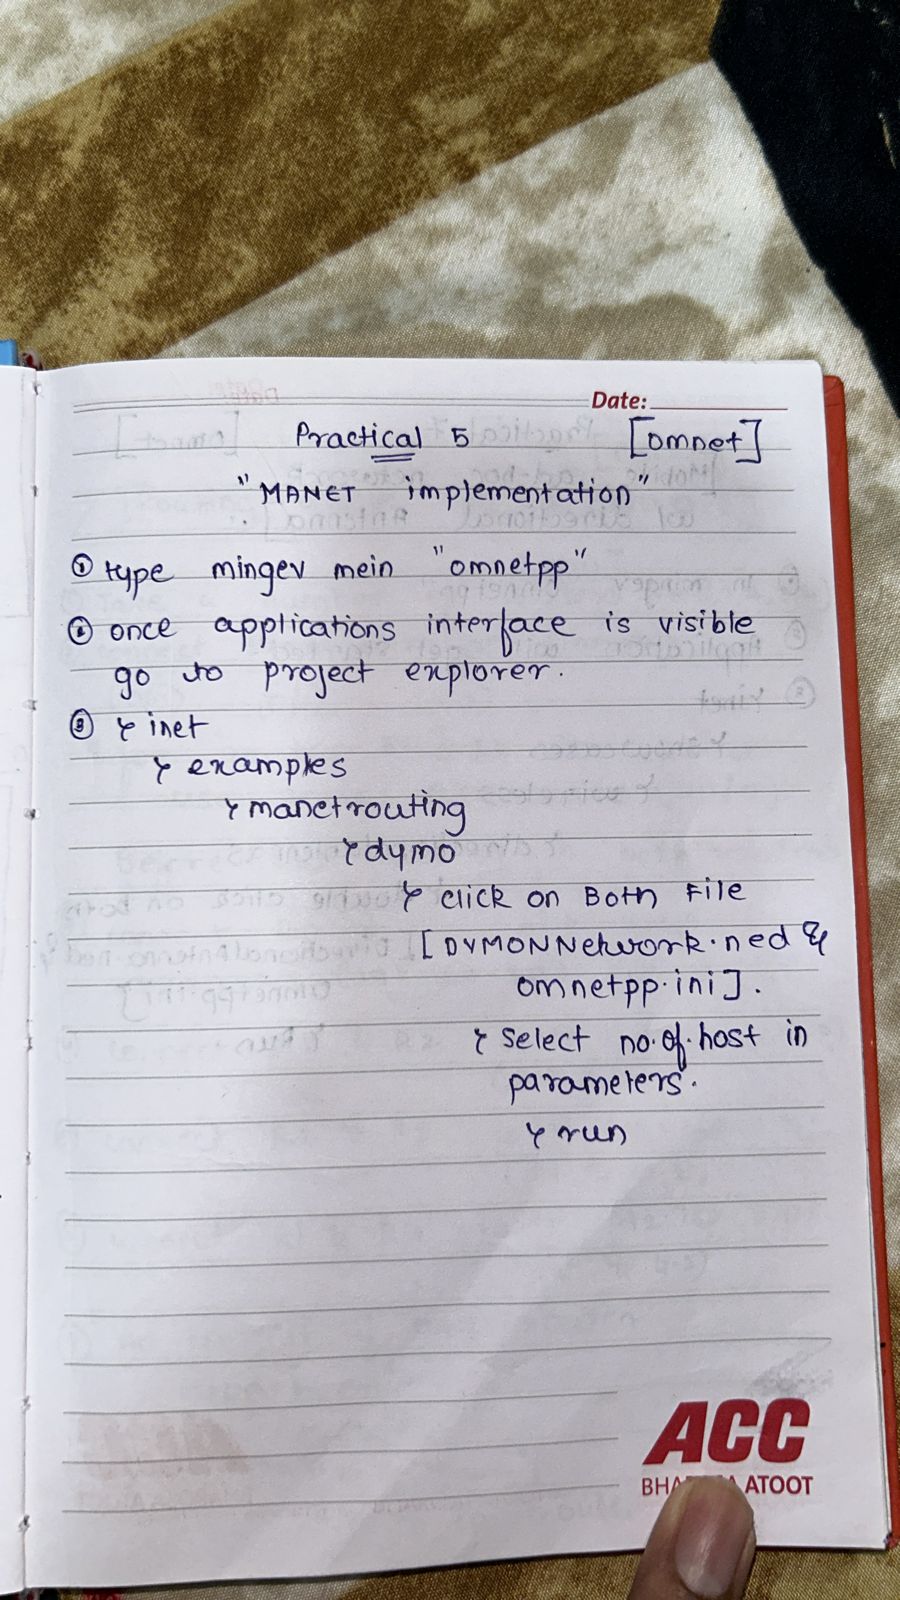 Date:
Practical 5 [omnet]
"MANET implementation"
① type mingev mein "omnetpp"
② once applications interface is visible
go to project explorer.
③ > inet
> examples
> manetrouting
> dymo
> click on Both File
[DYMONNetwork.ned &
omnetpp.ini].
> select no.of.host in
parameters.
> run
ACC
ATOOT